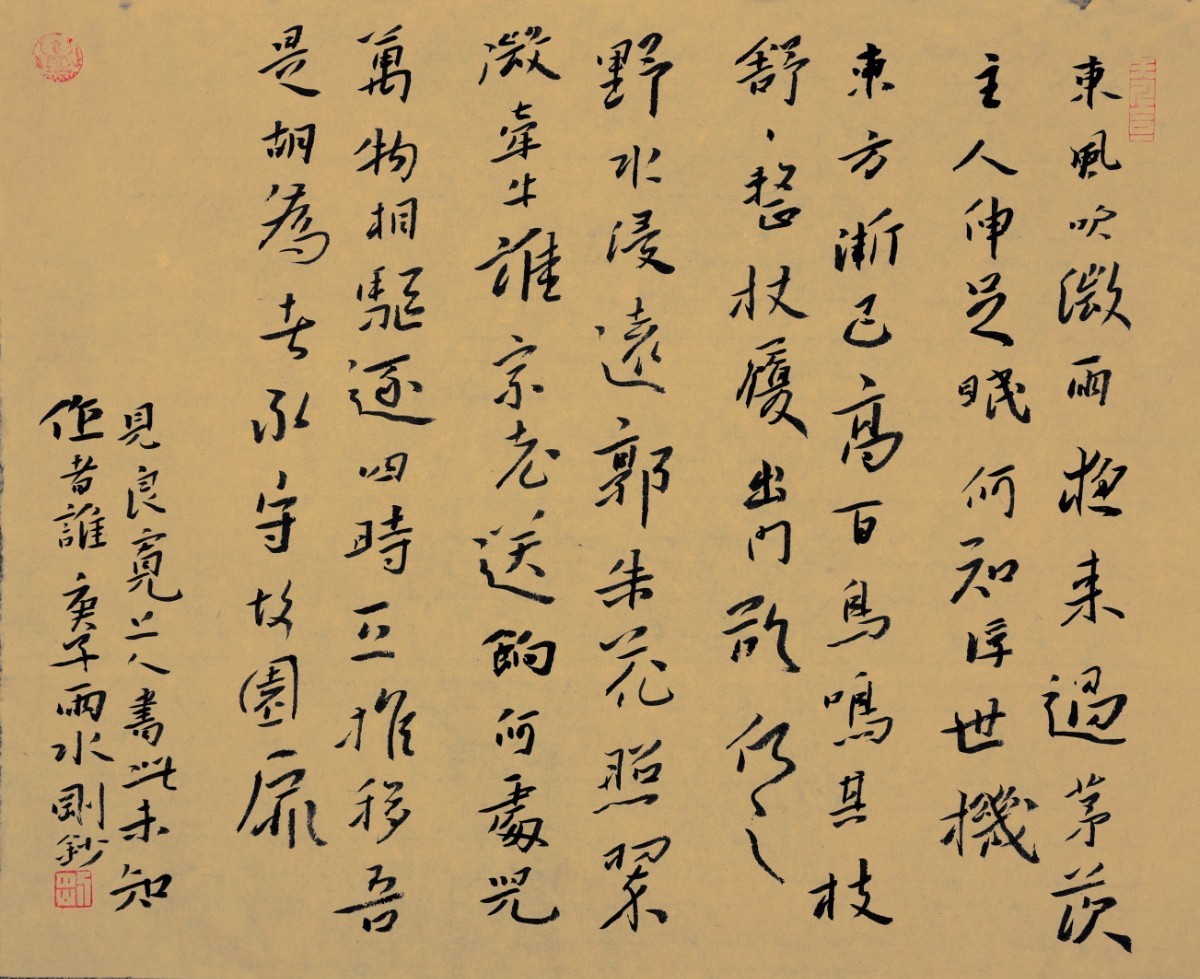 東風吹微雨來過茅茨
主人伸足眠何知浮世機
東方漸已高百鳥鳴其枝
舒、整杖履出門欲何之
野水浸遠郭朱花照翠
微牽牛誰家老送餉何處兒
萬物相驅逐四時互推移吾
是胡為者永守故園扉
見良寬上人書此未知
作者誰庚子雨水剛鈔